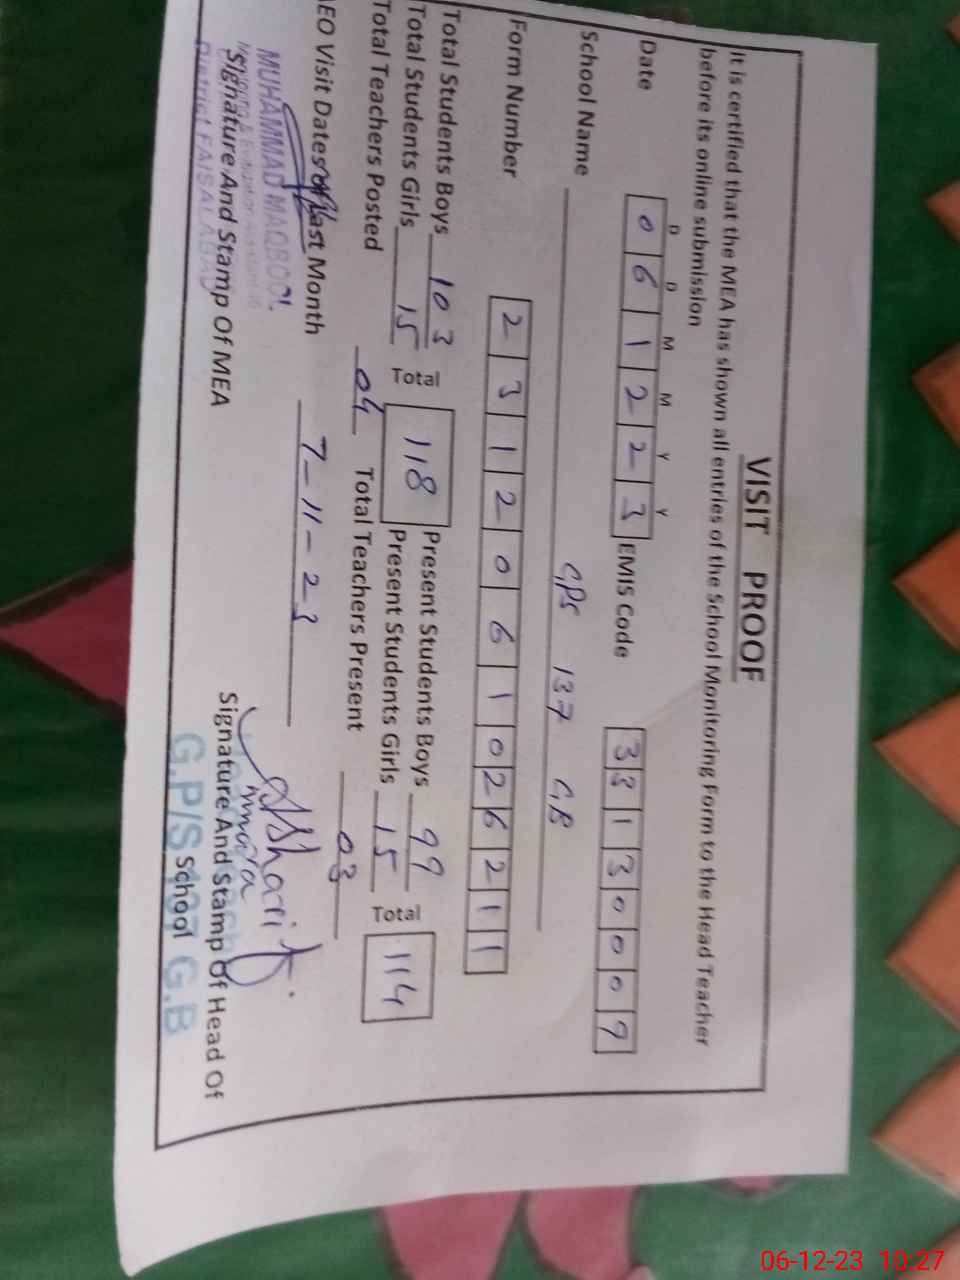 VISIT PROOF
It is certified that the MEA has shown all entries of the School Monitoring Form to the Head Teacher
before its online submission
D D M M Y Y
Date 0 6 1 2 2 3 EMIS Code 3 3 1 3 0 0 0 9
School Name GPS 137 GB
Form Number 2 3 1 2 0 6 1 0 2 6 2 1 1
Total Students Boys 103 Present Students Boys 99
Total Students Girls 15 Total 118 Present Students Girls 15 Total 114
Total Teachers Posted 04 Total Teachers Present 03
AEO Visit Dates of last Month 7-11-23
MUHAMMAD MAQBOOL
Monitoring & Evaluation Assistant
Signature And Stamp Of MEA
District FAISALABAD
Signature And Stamp Of Head Of
School
G.P/S 137 G.B
06-12-23 10:27